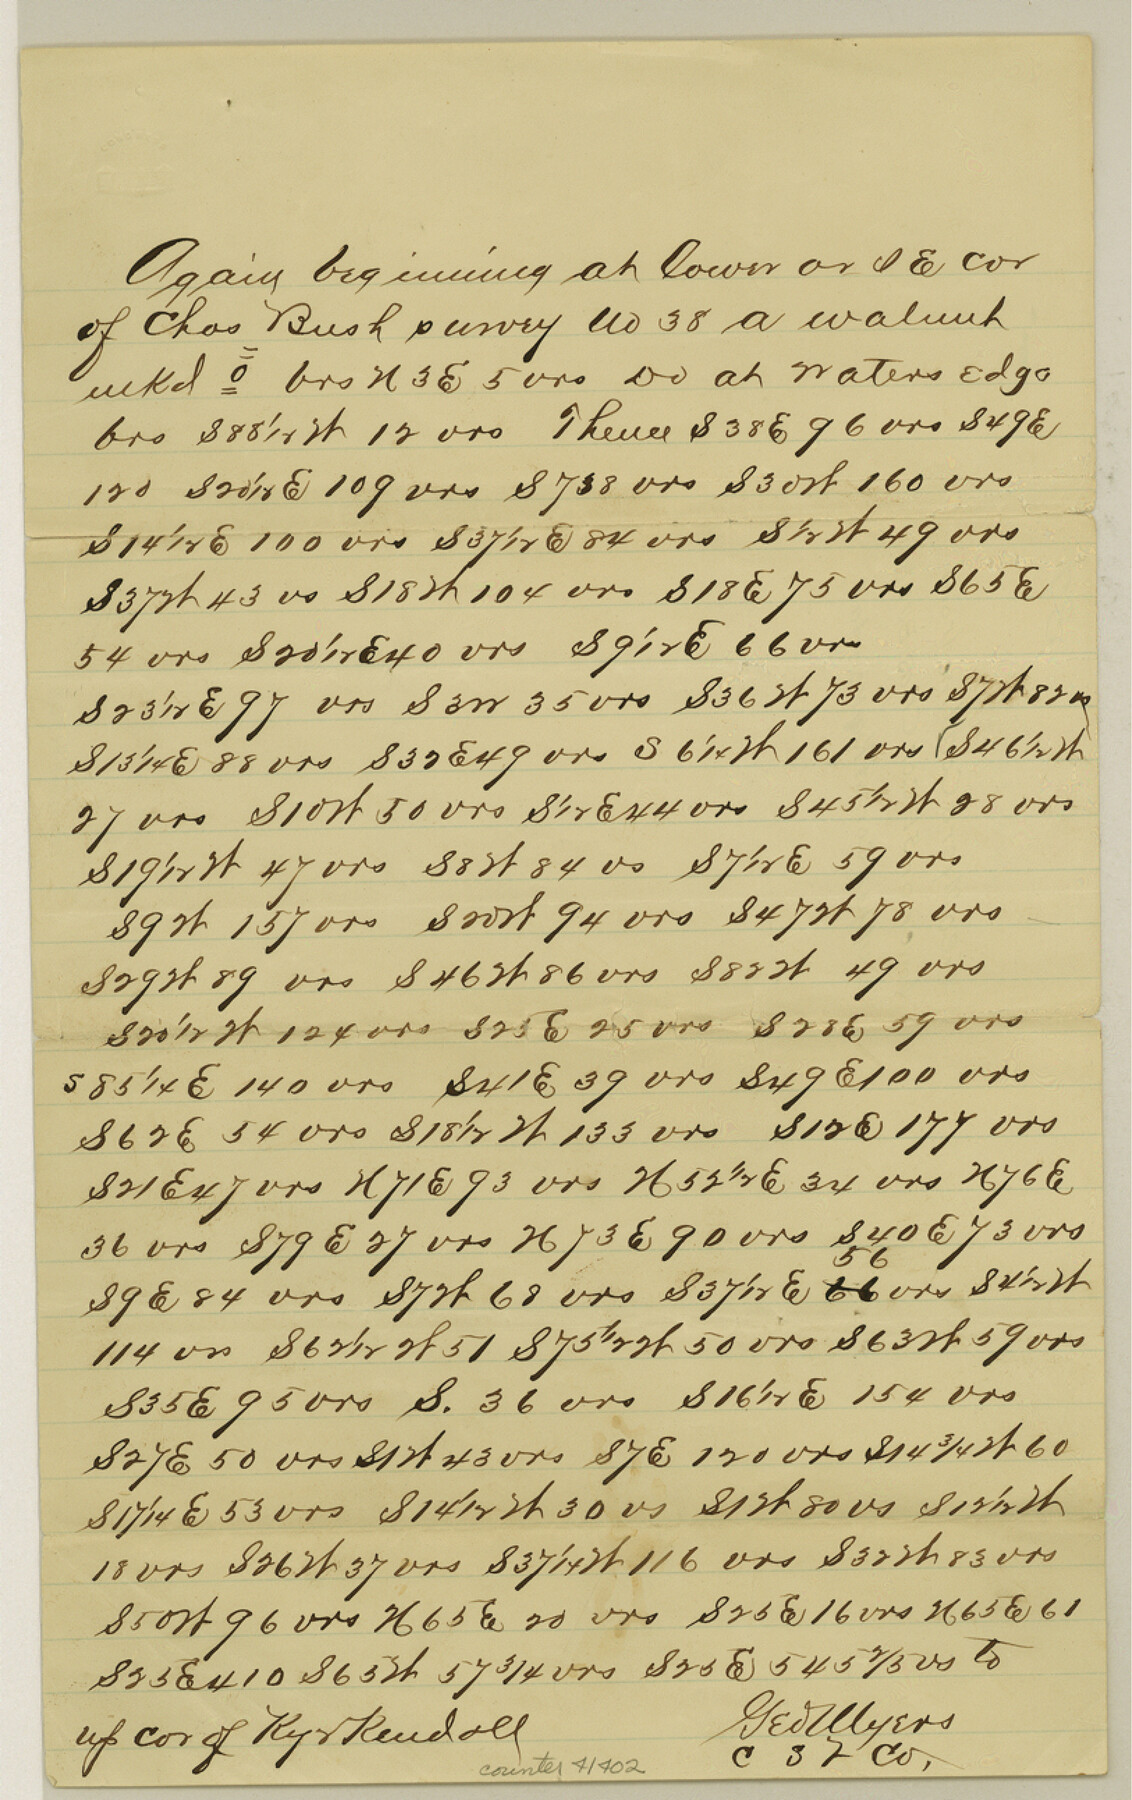 Again beginning at lower or S E cor
of Chas Bush survey No 38 a walnut
mkd O brs N 3E 5 vrs Do at waters edge
brs S88½W 12 vrs Thence S38E 96 vrs S49E
120 S20½E 109 vrs S738 vrs S30W 160 vrs
S14½E 100 vrs S37½E 84 vrs S½W 49 vrs
S37W 43 vs S18W 104 vrs S18E 75 vrs S65E
54 vrs S20½E 40 vrs S9½E 66 vrs
S23½E 97 vrs S3W 35 vrs S36W 73 vrs S7W 82 vs
S13¼E 88 vrs S32E 49 vrs S6¼W 161 vrs (S46½W
27 vrs S10W 50 vrs S½E 44 vrs S45½W 28 vrs
S19½W 47 vrs S8W 84 vs S7½E 59 vrs
S9W 157 vrs S20W 94 vrs S47W 78 vrs
S29W 89 vrs S46W 86 vrs S82W 49 vrs
S20½W 124 vrs S25E 25 vrs S28E 59 vrs
S85¼E 140 vrs S41E 39 vrs S49E 100 vrs
S62E 54 vrs S18½W 133 vrs S12E 177 vrs
S21E 47 vrs N71E 93 vrs N52½E 34 vrs N76E
36 vrs S79E 27 vrs N73E 90 vrs S40E 73 vrs
56
S9E 84 vrs S7W 68 vrs S37½E 66 vrs S4½W
114 vrs S62½W 51 S75½W 50 vrs S63W 59 vrs
S35E 95 vrs S. 36 vrs S16½E 154 vrs
S27E 50 vrs S1W 43 vrs S7E 120 vrs S14¾W 60
S17¼E 53 vrs S14½W 30 vs S1W 80 vs S12½W
18 vrs S26W 37 vrs S37¼W 116 vrs S32W 83 vrs
S50W 96 vrs N65E 20 vrs S25E 16 vrs N65E 61
S25E 410 S65W 57¾ vrs S25E 545⅖ vs to
up cor of Kyrkendall
Geo W Myers
C S L Co,
counter 41402